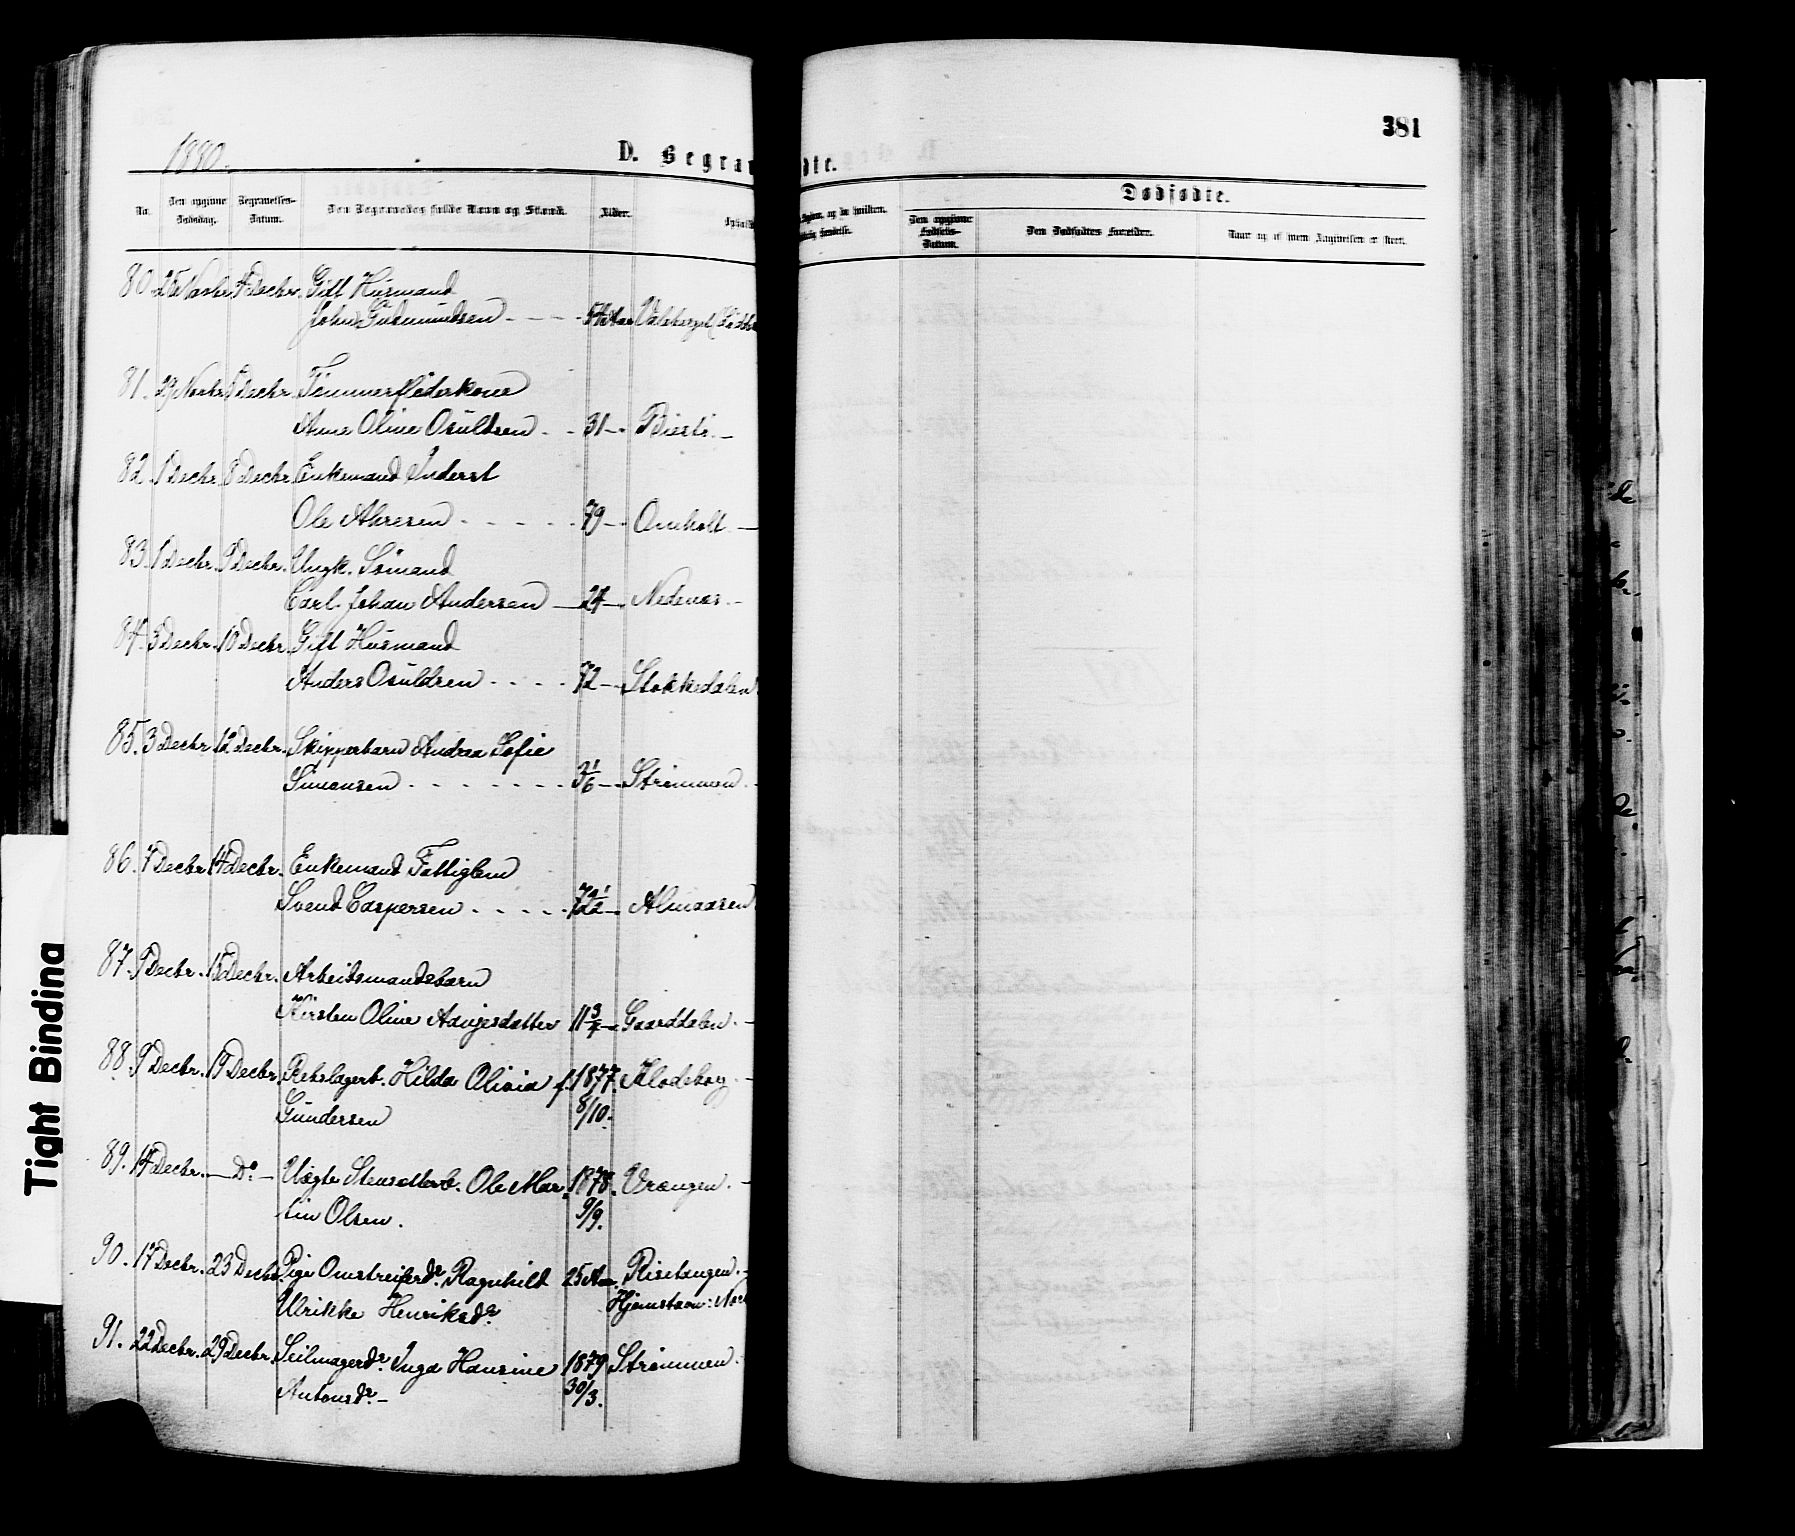 381
1880.
D. Begrav
dte.
Dødfødte.
No.
Den opgivne
Dødsdag.
Begravelses-
Datum.
Den Begravedes fulde Navn og Stand.
Alder.
Den opgivne
Fødsels-
Datum.
Den Dødfødtes Forældre.
Naar og af hvem Angivelsen er skeet.
80. 25 Novbr. 4 Decbr. Gift Husmand
John Gudmundsen - - - - 54 Aar
81. 29 Novbr. 5 Decbr. Tømmerfløderkone
Anne Oline Osuldsen - - 31 -
82. 1 Decbr. 8 Decbr. Enkemand Inderst
Ole Ahresen - - - - - 79 - Omholt -
83. 1 Decbr. 9 Decbr. Ungk. Sømand
Carl Johan Andersen - 24 - Nedenæs. -
84. 3 Decbr. 10 Decbr. Gift Husmand
Anders Osuldsen - - - - 72 - Stokkedalen
85. 3 Decbr. 12 Decbr. Skipperbarn Andrea Sofie
Simonsen - - - - - - - 3 1/6 - Strømmen -
86. 7 Decbr. 14 Decbr. Enkemand Fattiglem
Svend Caspersen - - - - 72 1/2 - Almaasen
87. 9 Decbr. 15 Decbr. Arbeidsmandsbarn
Kirsten Oline Aanjesdatter 11 3/4 - Gaarddalen. -
88. 9 Decbr. 19 Decbr. Rebslagerb. Hilda Olivia f. 1877. Klodeborg. -
Gundersen 8/10.
89. 14 Decbr. - Do. - Uægte Ole Mar- 1878. Vrængen. -
tin Olsen. 9/9.
90. 17 Decbr. 23 Decbr. Pige Omstreiferdr. Ragnhild 25 Aar. Risetangen. -
Ulrikke Henriksdr. Hjemstavn:
91. 22 Decbr. 29 Decbr. Seilmagerdr. Inga Hansine 1879 Strømmen. -
Antonsdr. - 30/3.
Tight Binding